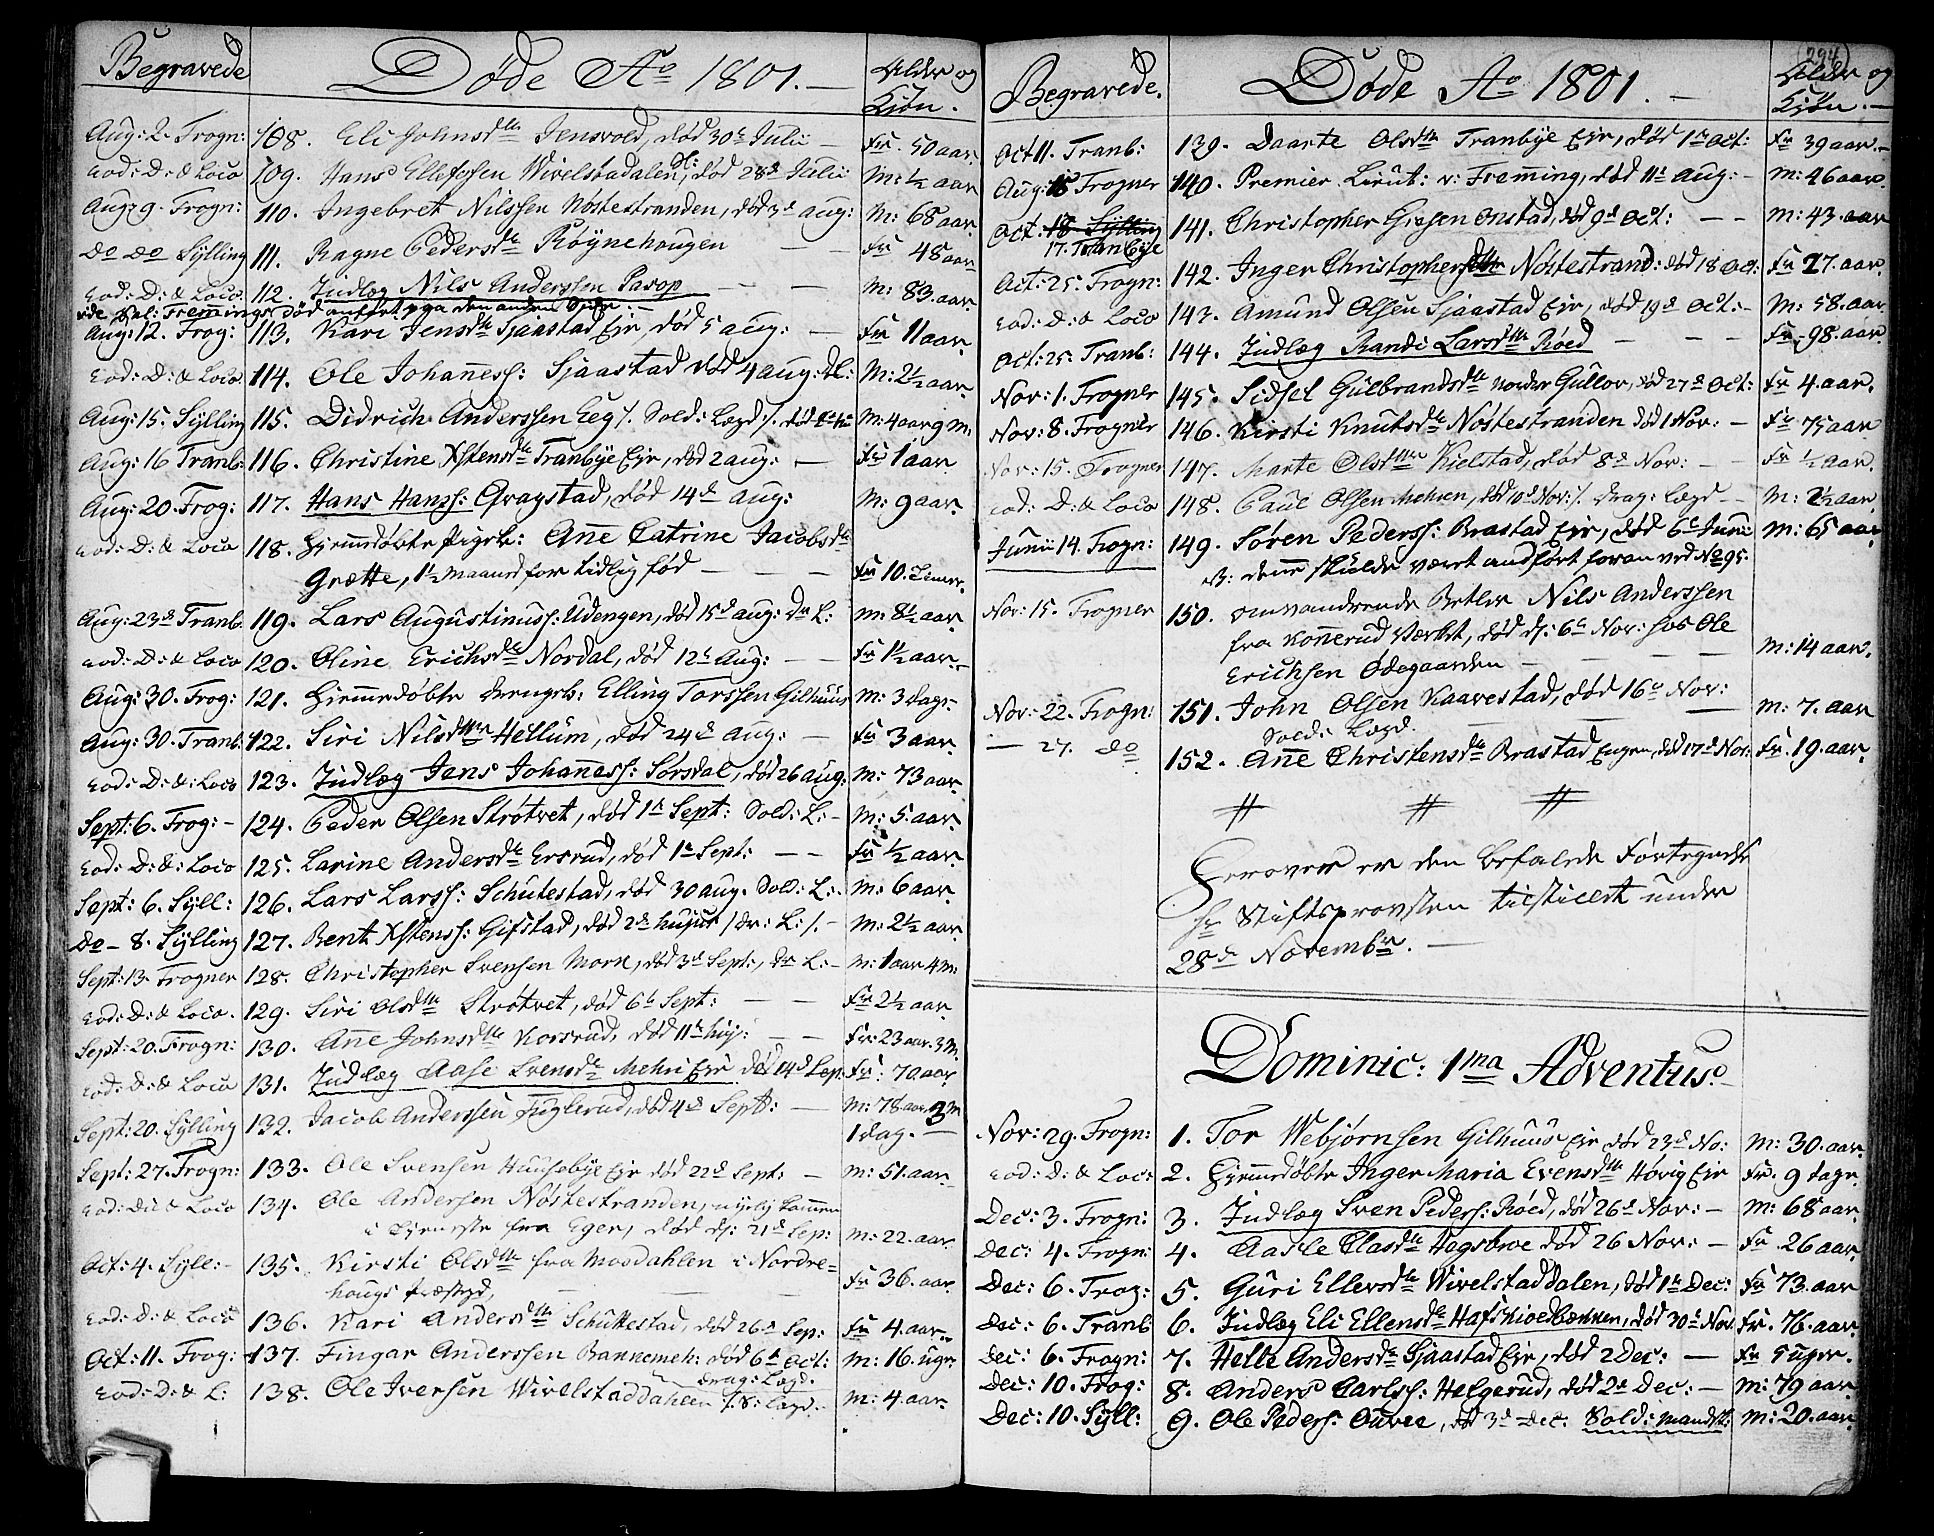 Begravede Døde Ao 1801. Alder og Kiøn.
Aug: 2. Frogn: 108. Eli Johnsdtr Jensvold, død 30te Julii — Fr: 50 aar
eod: D: & Loco 109. Hans Ellefsen Wivelstadalen, død 28d Julii M: ½ aar
Aug: 9. Frogn: 110. Ingebret Nilssen Nøstestranden, død 3d aug: M: 68 aar
do do Sylling 111. Ragne Pedersdtr Røynehougen — Fr 48 aar
eod: D: & Loco. 112. Indlæg Nils Anderssen Pasop — M: 83. aar
vide Fremings død anført paa den anden Side
Aug: 12. Frog: 113. Kari Jensdtr Sjaastad Eje, død 5 aug: — Fr 11 aar.
eod: D: & Loco 114. Ole Johaness: Sjaastad død 4 aug: M: 2½ aar
Aug: 15. Sylling 115. Didrich Anderssen Eeg /. Sold: Lægd /. død M: 4 aar 9 M:
Aug: 16 Tranb: 116. Christine Xstensdtr Tranbye Eje, død 2 aug: — Fr 1 aar
Aug: 20. Frog: 117. Hans Hanss: Qvagstad, død 14d aug: M: 9 aar.
eod: D: & Loco 118. Hjemedøbte Pigeb: Ane Catrine Jacobsdtr
Grette, 1½ maaned for tidlig fød — Fr 10. Timer.
Aug: 23d Tranb. 119. Lars Augustinuss: Udengen, død 15d aug: Dr L: M: 8½ aar.
eod: D: & Loco 120. Oline Erichsdtr Nordal, død 12t Aug: — Fr 1½ aar.
Aug: 30. Frog: 121. Hjemedøbte drengeb: Elling Torssen Gilhuus M: 3 dage
Aug: 30. Tranb: 122. Siri Nilsdtr Hellum, død 24d aug: — Fr 3 aar
eod: D: & Loco 123. Indlæg Jens Johaness: Sørsdal, død 26 aug: M: 73 aar.
Sept: 6. Frog: 124. Peder Olsen Strøtvet, død 1te Sept: Sold: L: — M: 5. aar.
eod: D: & Loco 125. Larine Andersdtr Ersrud, død 1e Sept: — Fr ½ aar.
Sept: 6. Syll: 126. Lars Larss: Schutestad, død 30 aug. Sold: L: M: 6 aar
Do — 8. Sylling 127. Bent Xstenss: Gifstad, død 2d hujus / Dr: L: /. M: 2½ aar.
Sept: 13. Frogner 128. Christopher Svensen Mork, død 3d Sept:, Dr L: M: 1 aar 4 M:
eod: D: & Loco. 129. Siri Olsdtr Strøtvet, død 6te Sept: — Fr 2½ aar
Sept: 20. Frogn: 130. Ane Johnsdtr Korsrud, død 11te huj: Fr: 23 aar. 3 M.
eod: D: & Loco 131. Indlæg Aase Svensdtr Mehn Eje død 14d Sep. Fr: 70 aar.
Sept: 20. Sylling 132. Jacob Anderssen Fuglerud, død 4d Sept: — M: 78 aar 3 M 1 dag. —
Sept: 27. Frogn: 133. Ole Svensen Huusebye Eje død 22d Sept: — M: 51. aar.
eod: D: & Loco 134. Ole Andersen Nøstestranden, nylig komen
i Tjeneste fra Eger, død d: 21d Sep: M: 22. aar
Oct: 4. Syll: — 135. Kirsti Olsdtr fra Mosdahlen i Nordre-
hougs Præstgd, — Fr 36. aar.
eod: D: & Loco 136. Kari Andersdtr Schuttestad, død 26d Sep: Fr 4. aar.
Oct: 11. Frog: 137. Fingar Anderssen Bannemeh: død 6te Oct: M: 16. uger
eod: D: & L: 138. Ole Iversen Wivelstaddahlen /S: Lægd. M: 4. aar.
drag: Lægd.
(294)
Begravede. Døde Ao 1801. — Alder og Kiøn. —
Oct 11. Tranb: 139. Daarte Olsdtr Tranbye Eje, død 1te Oct: Fr 39 aar.
Aug: 15 Frogner 140. Premier Lieut: v: Freming, død 11te Aug: — M: 46 aar.
Oct: 18 Sylling 141. Christopher Onstad, død 9d Oct: — M: 43. aar
17. Tranbye
Oct: 25. Frogn: 142. Inger Christophersdtr Nøstestrand: død 18 Oct: Fr 27. aar.
eod: D: & Loco 143. Amund Olsen Sjaastad Eje, død 19d Oct: M: 58. aar.
Oct: 25. Tranb: 144. Indlæg Randi Larsdtr Røed — Fr: 98. aar.
Nov: 1. Frogner 145. Sidsel Gulbrandsdtr Norder Gullor, død 27d Oct: Fr 4. aar.
Nov: 8. Frogner 146. Kirsti Knutsdtr Nøstestranden død 1 Nov: — Fr 75 aar
Nov: 15. Frogner 147. Marte Olsdtr Kielstad, død 8d Nov: — Fr ½ aar.
eod: D: & Loco 148. Paul Olsen Mehren, død 10d Nov: /. drag: Lægd — M: 2½ aar
Junii 14. Frogn: 149. Søren Pederss: Brastad Eje, død 6te Junii M: 65 aar
NB: dene skulde været anført foran ved No 95.
Nov: 15. Frogner 150. omvandrende Betler Nils Anderssen
fra Konnerud Værket, død d: 6te Nov: hos Ole
Erichsen Ødegaarden — M: 14 aar.
Nov: 22. Frogn: 151. John Olsen Kaavestad, død 16de Nov: M: 7. aar
Sold: Lægd.
— 27. do 152. Ane Christensdtr Brastad Engen, død 17d Nov: Fr. 19. aar.
# # #
Herover er den befalede Fortegnelse
hr Stiftsprovsten tilstillet under
28d Novembr. —
Dominic: 1ma Adventus.
Nov: 29. Frogn: 1. Tor Webjørnsen Gilhuus Eje død 23d No: M: 30. aar.
eod: D: & Loc: 2. Hjemedøbte Inger Maria Evensdtr Høvig Eje Fr. 9 dage.
Dec: 3. Frogn: 3. Indlæg Sven Pederss: Røed, død 26d Nov: — M: 68 aar.
Dec: 4. Frogn: 4. Aasle Clasdtr Hagsbroe død 26 Nov: — Fr 26 aar.
Dec: 6. Frog: 5. Guri Ellersdtr Wivelstaddalen, død 1te Dec: Fr 73. aar
Dec: 6. Tranb 6. Indlæg Eli Ellensdtr Hafskioldbækken, død 30d Nov. Fr. 76. aar.
Dec: 6. Frogn: 7. Helle Andersdtr Sjaastad Eje, død 2 Dec: — Fr 5 uger.
Dec: 10. Frog: 8. Anders Carlss: Helgerud, død 2d Dec: — M: 79 aar.
Dec: 10. Syll: 9. Ole Peders: Ouvee, død 3d Dec: Sold: mandsk: M: 20. aar.